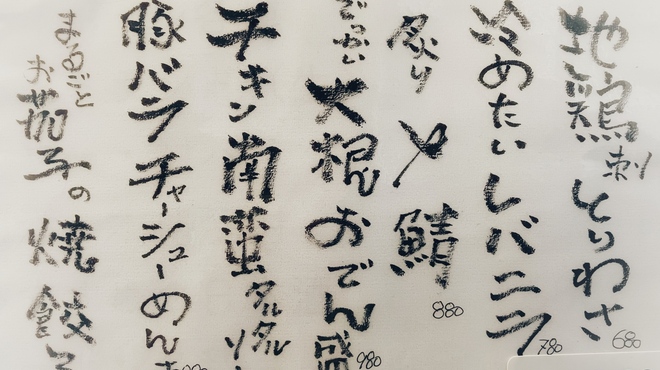 地鶏刺 とりわさ 680
冷めたいレバニラ 780
炙り〆鯖 880
でっかい大根おでん盛 980
チキン南蛮タルタルソー
豚バラチャーシューめん
まるごとお茄子の焼餃子